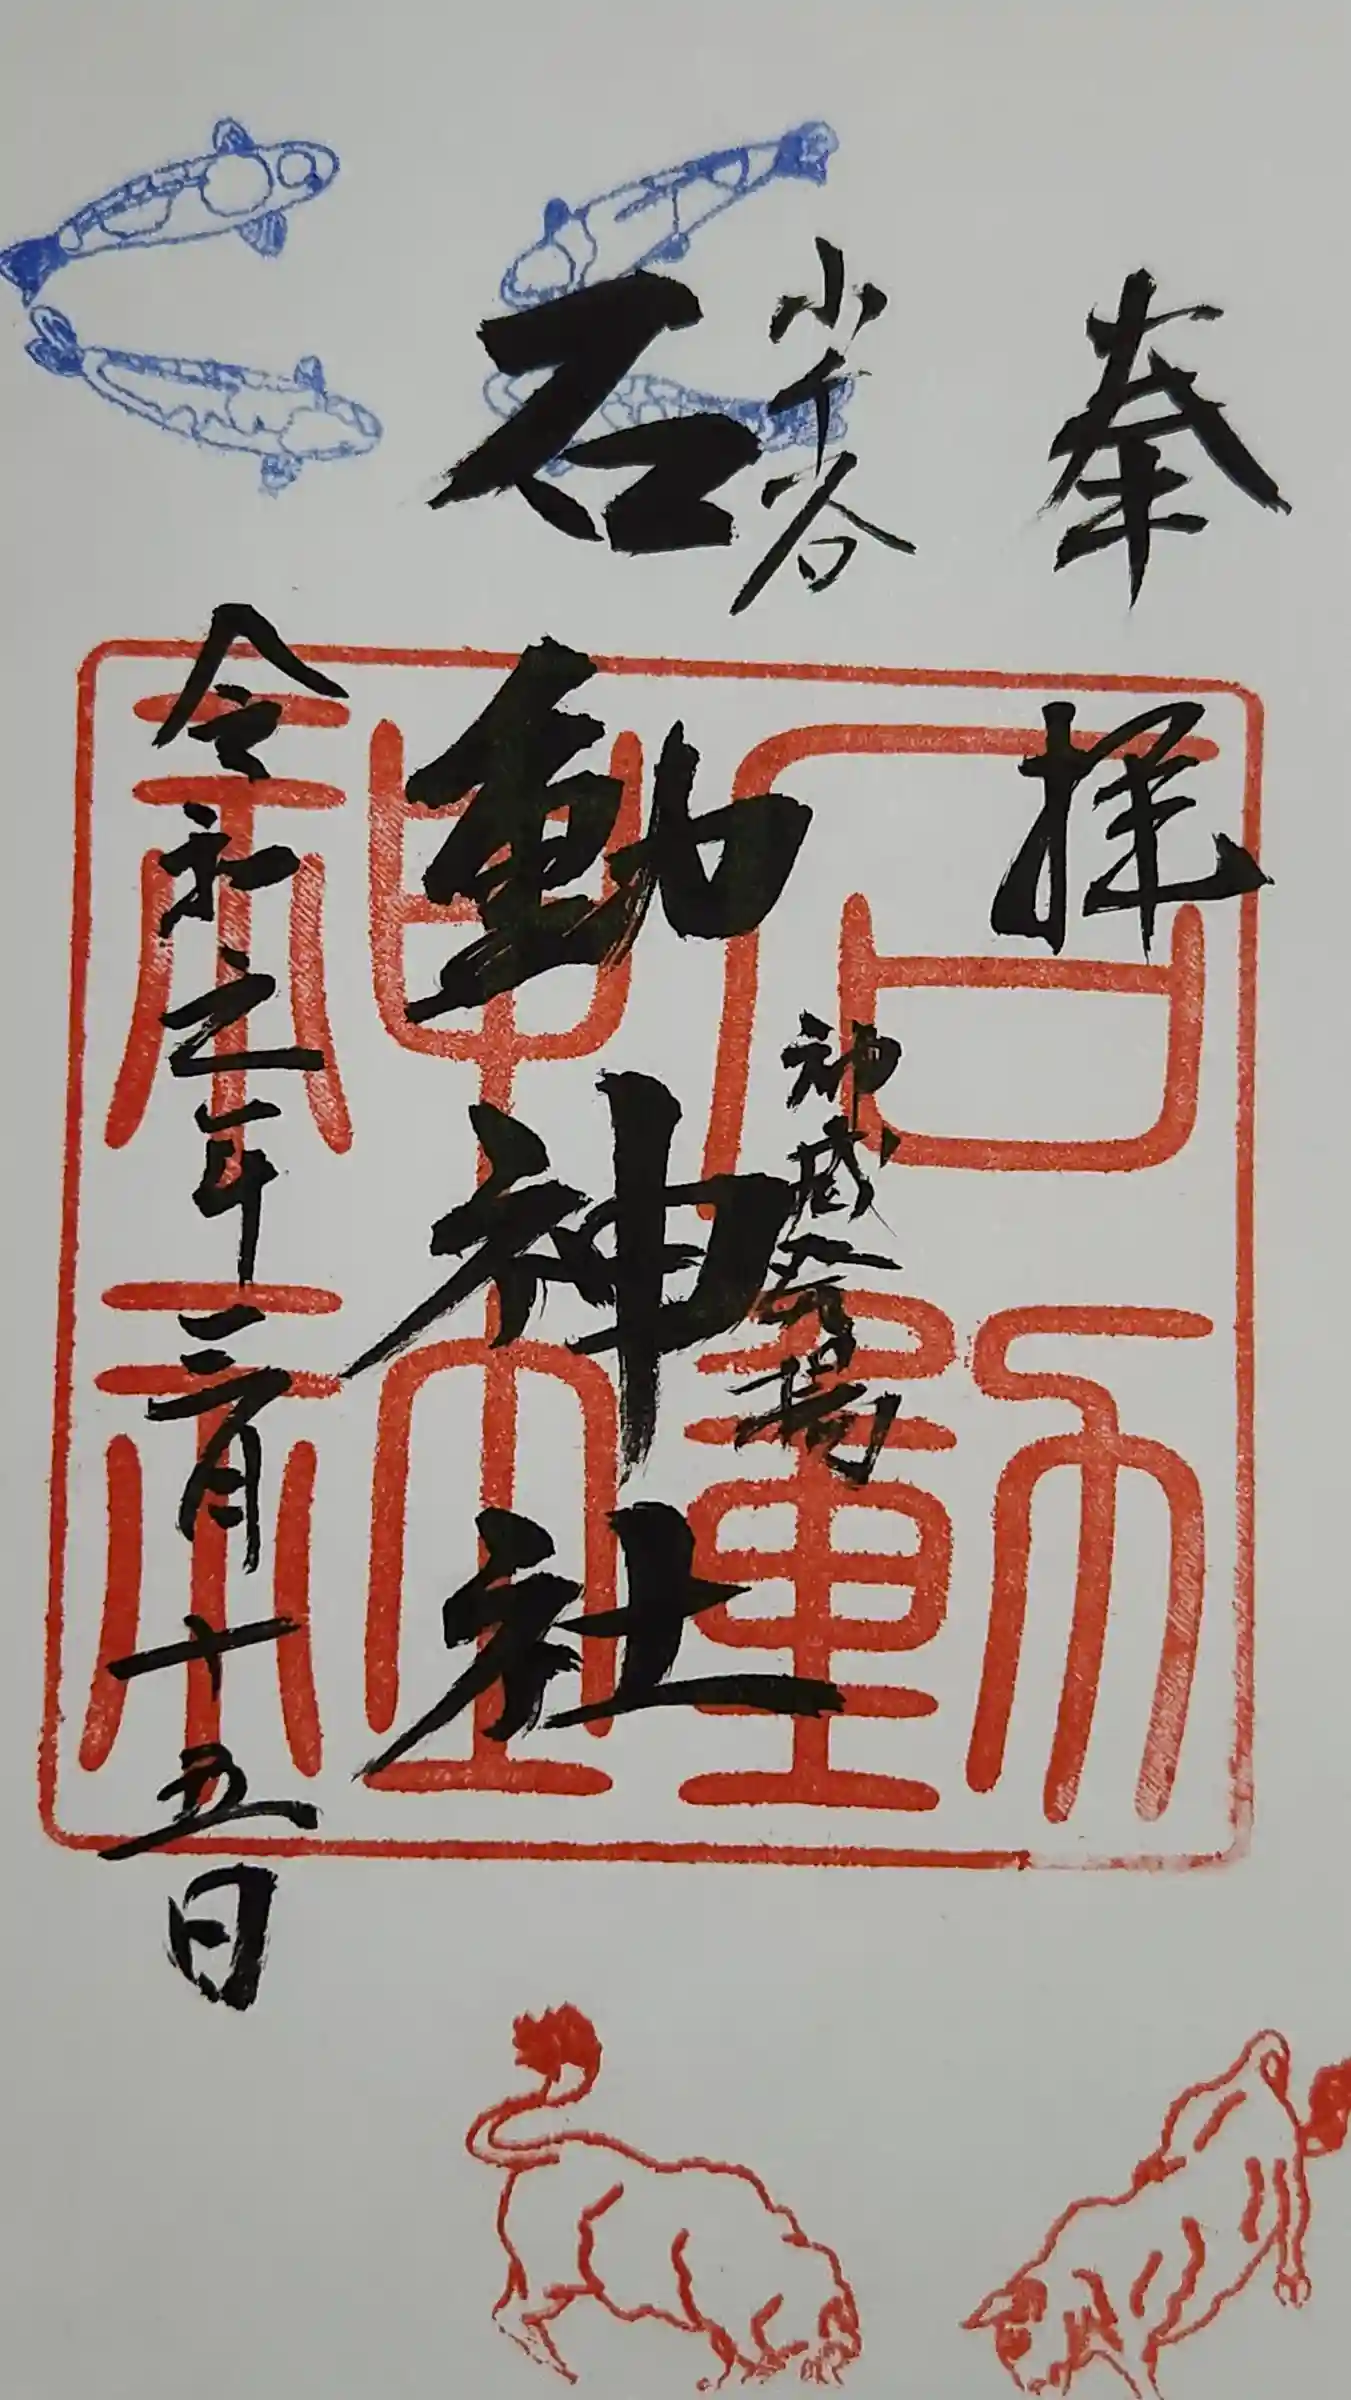 奉拝
小千谷
石動神社
神威
揚
令和元年三月十五日
石動
神社